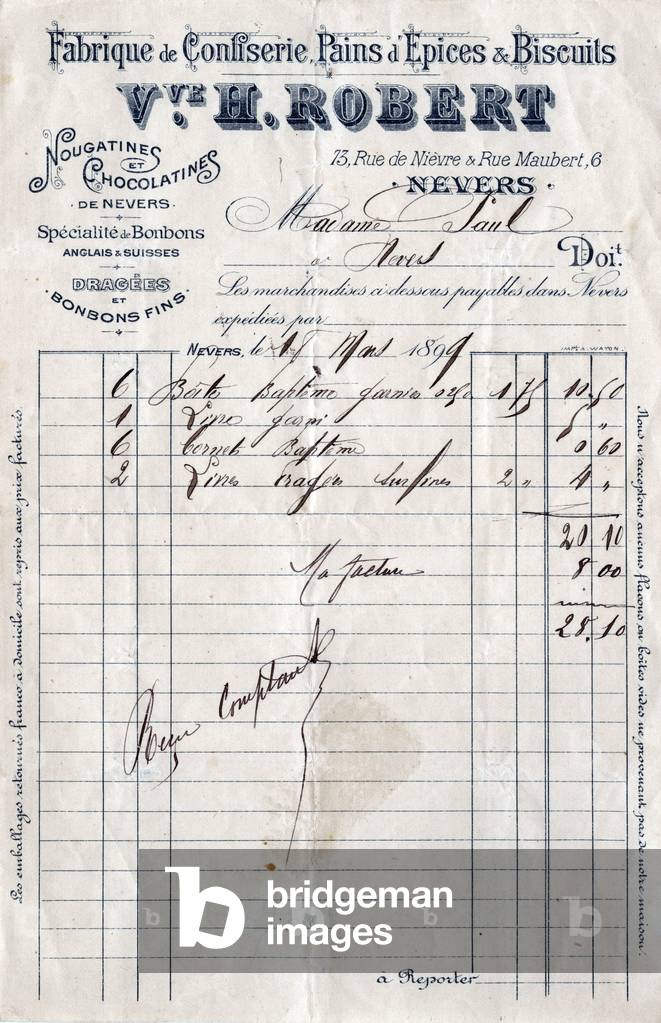 Fabrique de Confiserie, Pains d'Epices & Biscuits
VVE H. ROBERT
73, Rue de Nièvre & Rue Maubert, 6
NEVERS
NOUGATINES
ET
CHOCOLATINES
DE NEVERS
Spécialité de Bonbons
ANGLAIS & SUISSES
DRAGÉES
ET
BONBONS FINS
Madame Paul
à Nevers Doit.
Les marchandises ci-dessous payables dans Nevers
expédiées par
NEVERS, le Mars 1899
IMP. A. WATON
6 Boîtes Baptême garnies 1 75 10.50
1 Livre garni 5 "
6 Cornets Baptême 0 60
2 Livres Dragées Surfines 2 " 4 "
20 10
Ma facture 8 00
28.10
Reçu Comptant
Les emballages retournés franco à domicile sont repris aux prix facturés
Nous n'acceptons aucuns flacons ou boîtes vides ne provenant pas de notre maison.
à Reporter
bridgeman
images